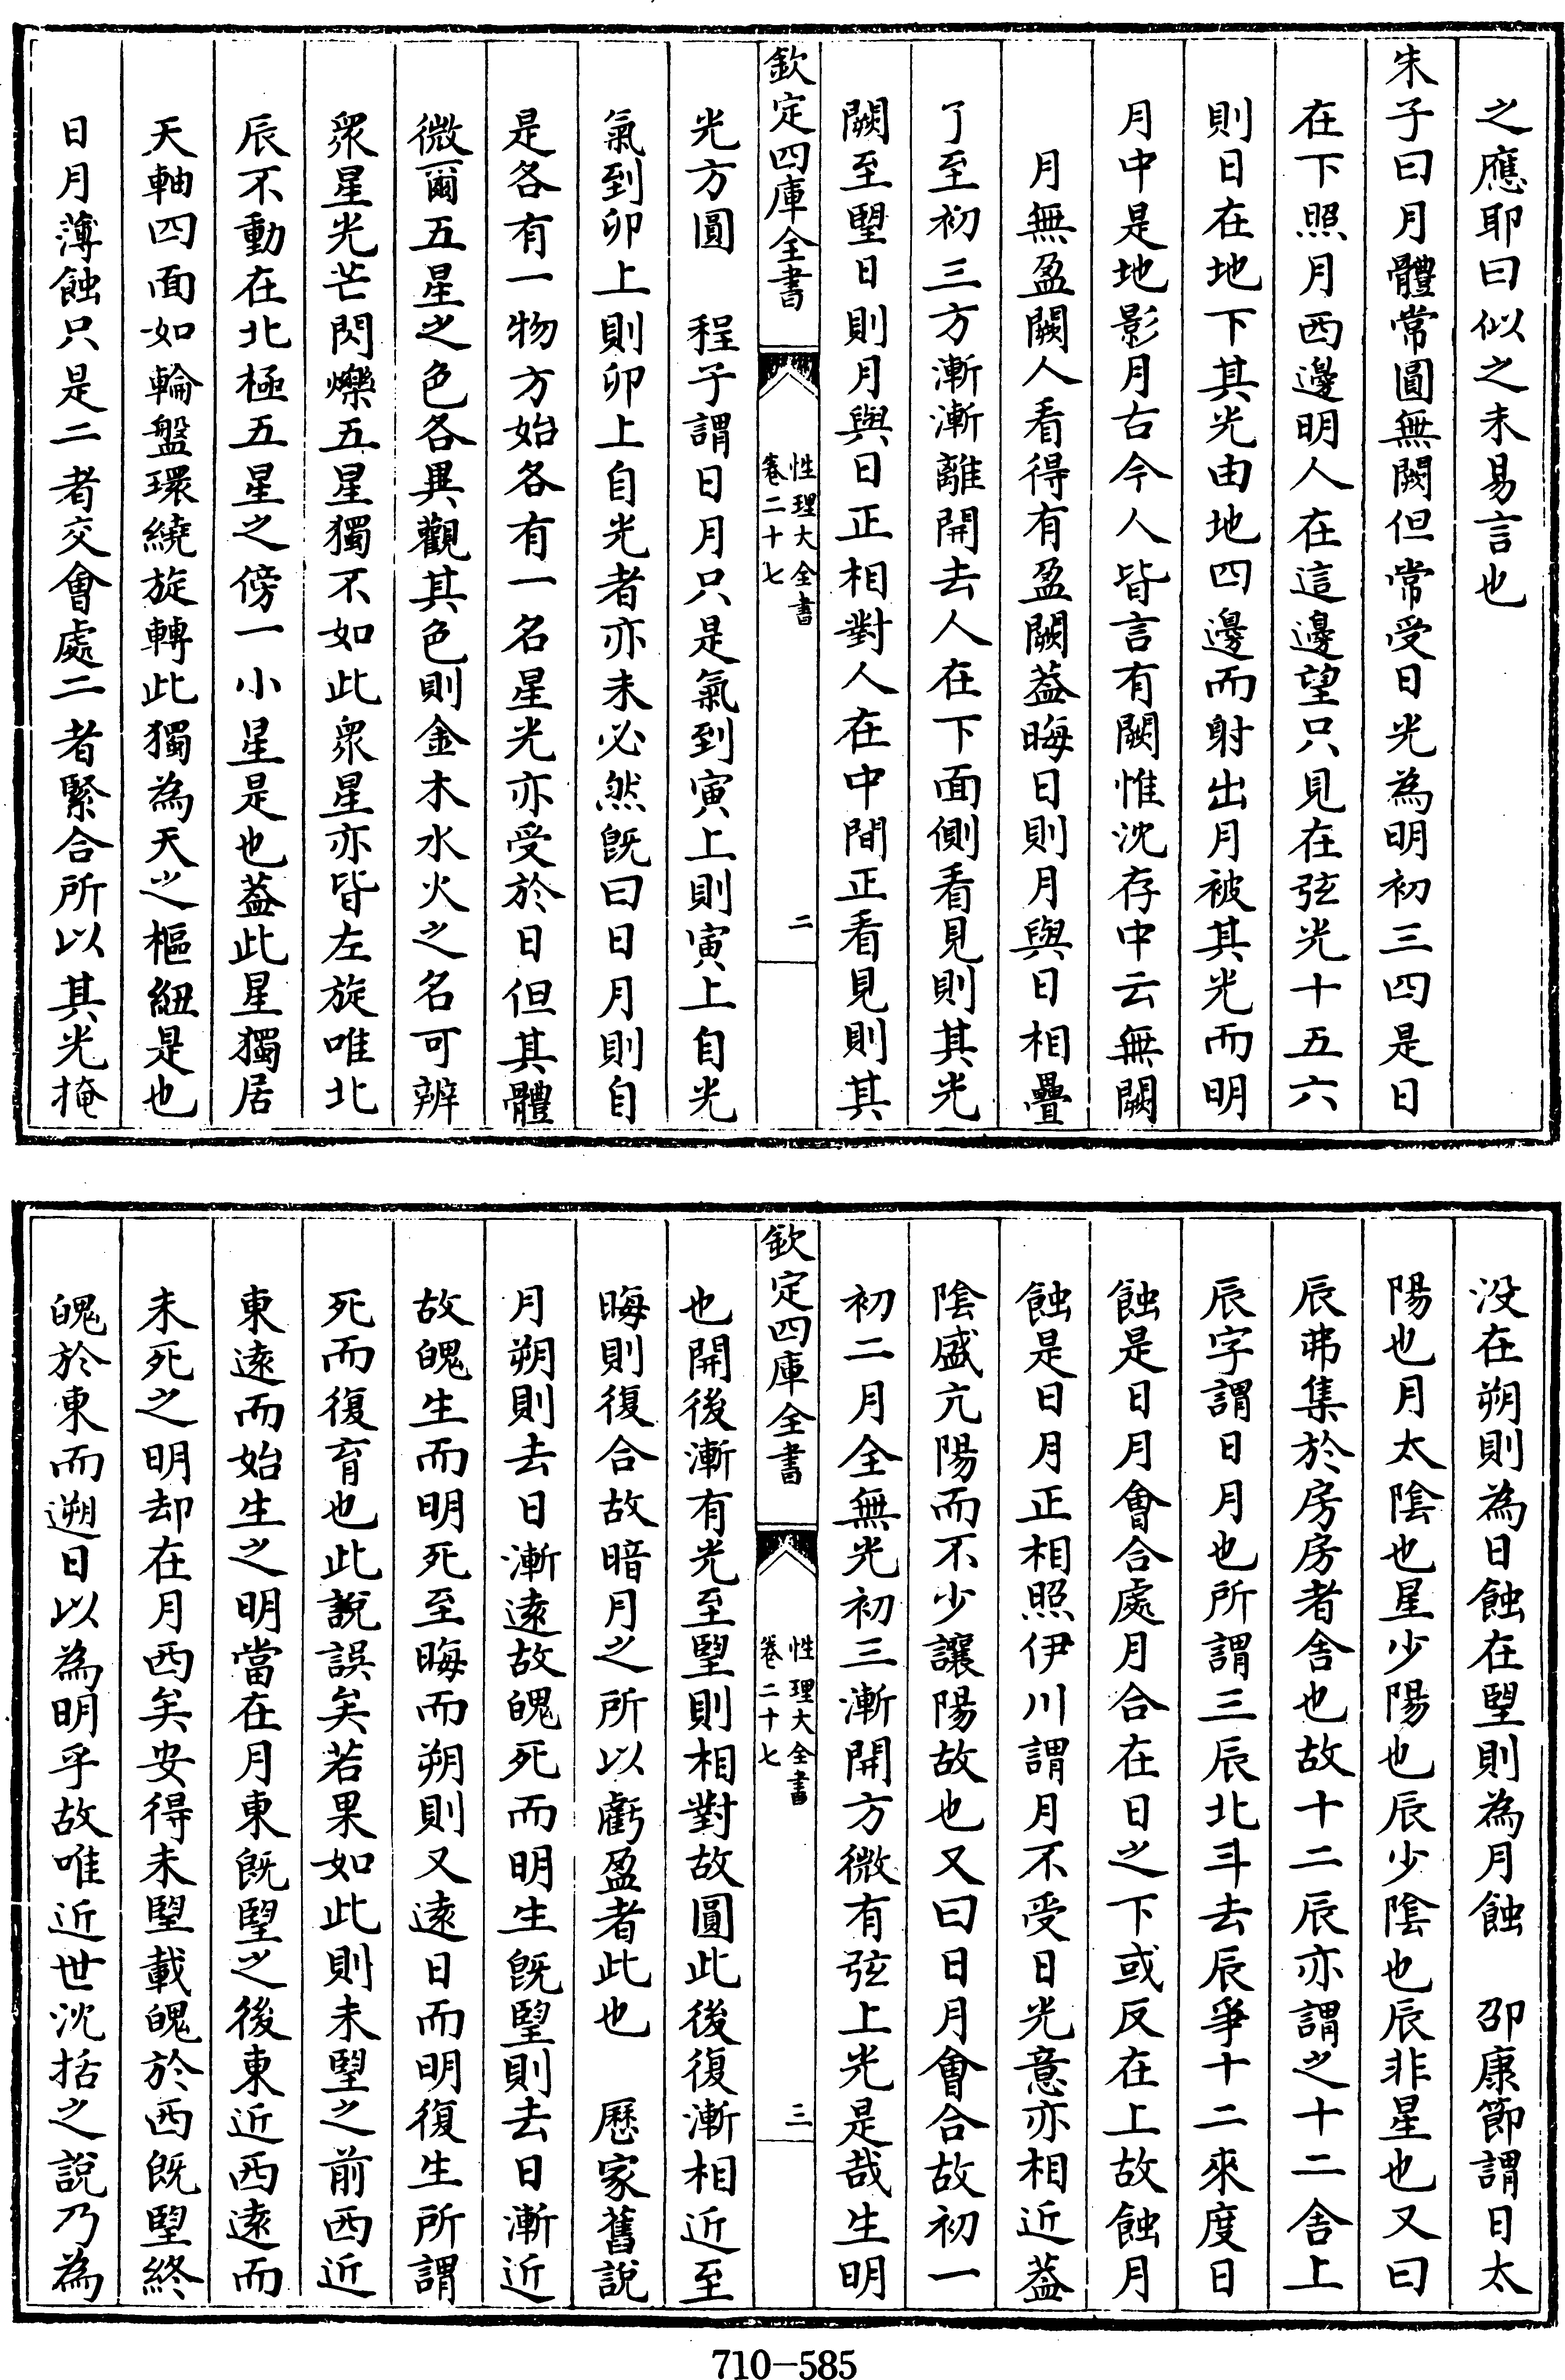 之應耶曰似之未易言也
朱子曰月體常圓無闕但常受日光為明初三四是日
在下照月西邊明人在這邊望只見在弦光十五六
則日在地下其光由地四邊而射出月被其光而明
月中是地影月古今人皆言有闕惟沈存中云無闕
月無盈闕人看得有盈闕葢晦日則月與日相疊
了至初三方漸漸離開去人在下面側看見則其光
闕至朢日則月與日正相對人在中間正看見則其
欽定四庫全書
性理大全書
卷二十七
二
光方圓 程子謂日月只是氣到寅上則寅上自光
氣到卯上則卯上自光者亦未必然旣曰日月則自
是各有一物方始各有一名星光亦受於日但其體
微爾五星之色各異觀其色則金木水火之名可辨
衆星光芒閃爍五星獨不如此衆星亦皆左旋唯北
辰不動在北極五星之傍一小星是也葢此星獨居
天軸四面如輪盤環繞旋轉此獨為天之樞紐是也
日月薄蝕只是二者交會處二者緊合所以其光掩
没在朔則為日蝕在朢則為月蝕 邵康節謂日太
陽也月太陰也星少陽也辰少陰也辰非星也又曰
辰弗集於房房者舍也故十二辰亦謂之十二舍上
辰字謂日月也所謂三辰北斗去辰爭十二來度日
蝕是日月會合處月合在日之下或反在上故蝕月
蝕是日月正相照伊川謂月不受日光意亦相近葢
陰盛亢陽而不少讓陽故也又曰日月會合故初一
初二月全無光初三漸開方微有弦上光是哉生明
欽定四庫全書
性理大全書
卷二十七
三
也開後漸有光至朢則相對故圓此後復漸相近至
晦則復合故暗月之所以虧盈者此也 厯家舊說
月朔則去日漸遠故魄死而明生旣朢則去日漸近
故魄生而明死至晦而朔則又遠日而明復生所謂
死而復育也此說誤矣若果如此則未朢之前西近
東遠而始生之明當在月東旣朢之後東近西遠而
未死之明却在月西矣安得未朢載魄於西旣朢終
魄於東而遡日以為明乎故唯近世沈括之說乃為
710-585